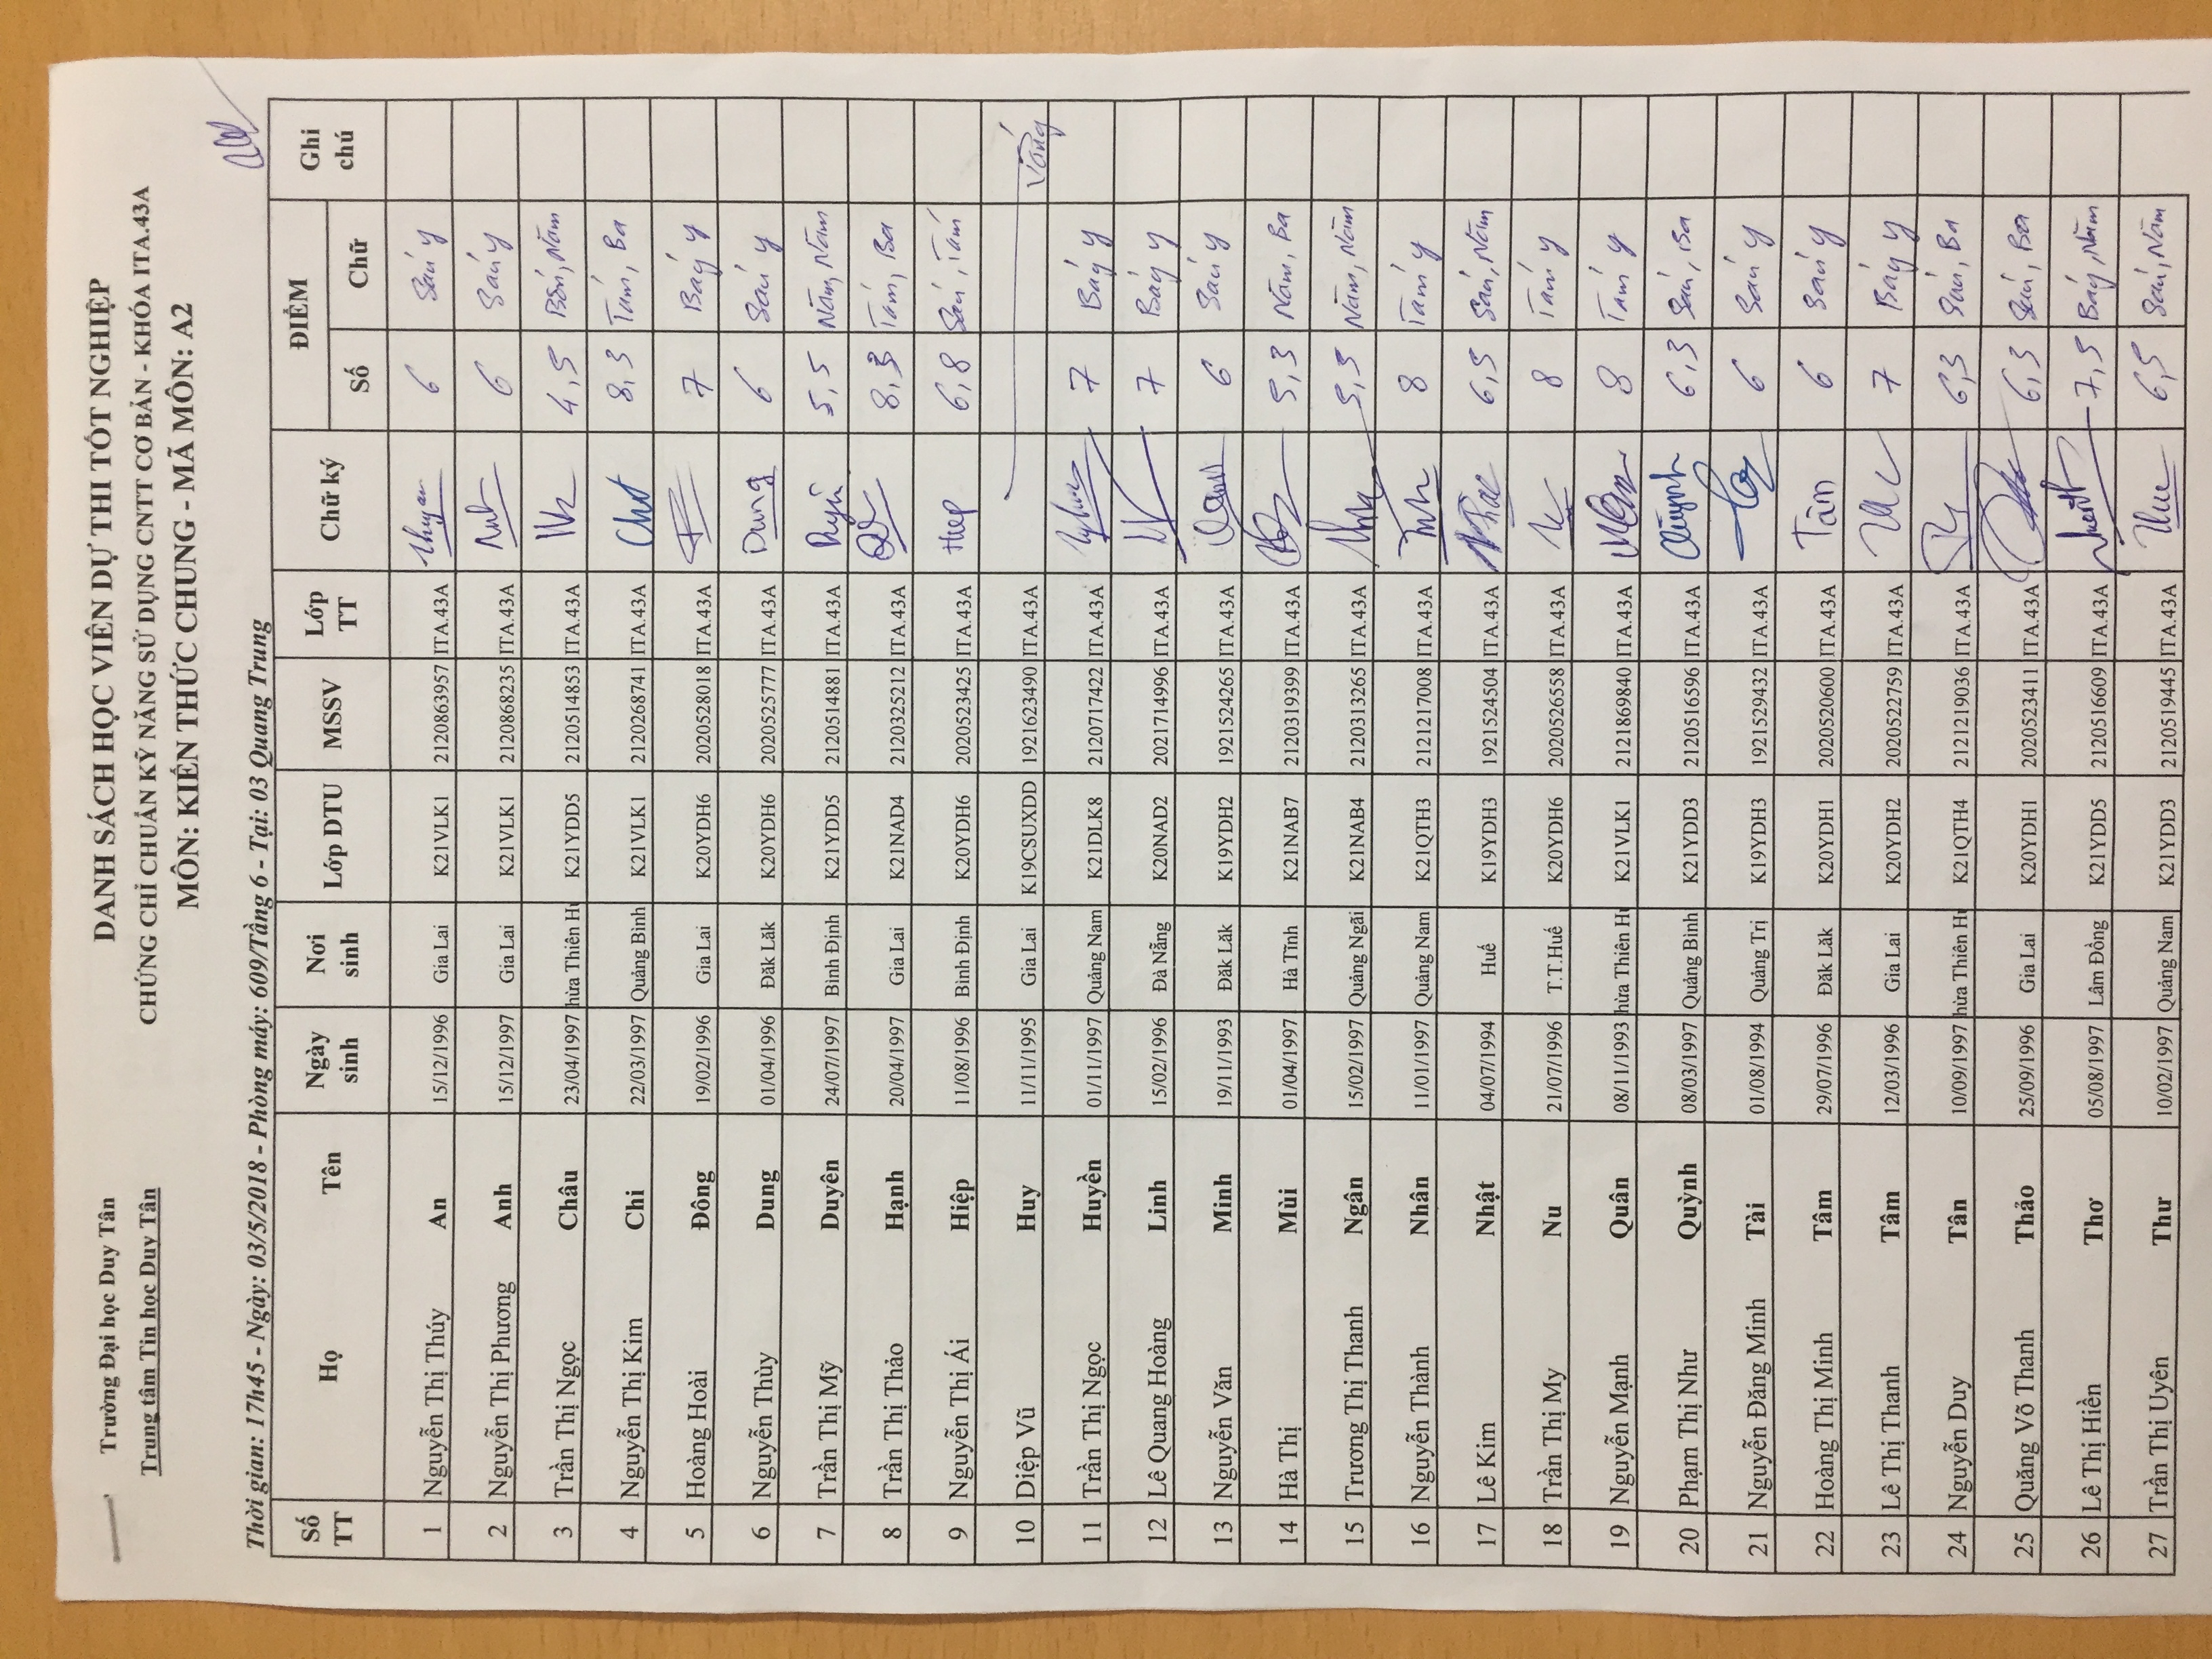 Trường Đại học Duy Tân
Trung tâm Tin học Duy Tân
DANH SÁCH HỌC VIÊN DỰ THI TỐT NGHIỆP
CHỨNG CHỈ CHUẨN KỸ NĂNG SỬ DỤNG CNTT CƠ BẢN - KHÓA ITA.43A
MÔN: KIẾN THỨC CHUNG - MÃ MÔN: A2
Thời gian: 17h45 - Ngày: 03/5/2018 - Phòng máy: 609/Tầng 6 - Tại: 03 Quang Trung
Số TT Họ Tên Ngày sinh Nơi sinh Lớp DTU MSSV Lớp TT Chữ ký ĐIỂM Số Chữ Ghi chú
1 Nguyễn Thị Thúy An 15/12/1996 Gia Lai K21VLK1 2120863957 ITA.43A 6 Sáu y
2 Nguyễn Thị Phương Anh 15/12/1997 Gia Lai K21VLK1 2120868235 ITA.43A 6 Sáu y
3 Trần Thị Ngọc Châu 23/04/1997 hừa Thiên H K21YDD5 2120514853 ITA.43A 4,5 Bốn, Năm
4 Nguyễn Thị Kim Chi 22/03/1997 Quảng Bình K21VLK1 2120268741 ITA.43A Chi 8,3 Tám, Ba
5 Hoàng Hoài Đông 19/02/1996 Gia Lai K20YDH6 2020528018 ITA.43A 7 Bảy y
6 Nguyễn Thùy Dung 01/04/1996 Đăk Lăk K20YDH6 2020525777 ITA.43A Dung 6 Sáu y
7 Trần Thị Mỹ Duyên 24/07/1997 Bình Định K21YDD5 2120514881 ITA.43A 5,5 Năm, Năm
8 Trần Thị Thảo Hạnh 20/04/1997 Gia Lai K21NAD4 2120325212 ITA.43A 8,3 Tám, Ba
9 Nguyễn Thị Ái Hiệp 11/08/1996 Bình Định K20YDH6 2020523425 ITA.43A Hiep 6,8 Sáu, Tám
10 Diệp Vũ Huy 11/11/1995 Gia Lai K19CSUXDD 1921623490 ITA.43A Vắng
11 Trần Thị Ngọc Huyền 01/11/1997 Quảng Nam K21DLK8 2120717422 ITA.43A 7 Bảy y
12 Lê Quang Hoàng Linh 15/02/1996 Đà Nẵng K20NAD2 2021714996 ITA.43A 7 Bảy y
13 Nguyễn Văn Minh 19/11/1993 Đăk Lăk K19YDH2 1921524265 ITA.43A 6 Sáu y
14 Hà Thị Mùi 01/04/1997 Hà Tĩnh K21NAB7 2120319399 ITA.43A 5,3 Năm, Ba
15 Trương Thị Thanh Ngân 15/02/1997 Quảng Ngãi K21NAB4 2120313265 ITA.43A 5,5 Năm, Năm
16 Nguyễn Thành Nhân 11/01/1997 Quảng Nam K21QTH3 2121217008 ITA.43A 8 Tám y
17 Lê Kim Nhật 04/07/1994 Huế K19YDH3 1921524504 ITA.43A 6,5 Sáu, Năm
18 Trần Thị My Nu 21/07/1996 T.T.Huế K20YDH6 2020526558 ITA.43A 8 Tám y
19 Nguyễn Mạnh Quân 08/11/1993 hừa Thiên H K21VLK1 2121869840 ITA.43A 8 Tám y
20 Phạm Thị Như Quỳnh 08/03/1997 Quảng Bình K21YDD3 2120516596 ITA.43A Quỳnh 6,3 Sáu, Ba
21 Nguyễn Đăng Minh Tài 01/08/1994 Quảng Trị K19YDH3 1921529432 ITA.43A 6 Sáu y
22 Hoàng Thị Minh Tâm 29/07/1996 Đăk Lăk K20YDH1 2020520600 ITA.43A Tâm 6 Sáu y
23 Lê Thị Thanh Tâm 12/03/1996 Gia Lai K20YDH2 2020522759 ITA.43A 7 Bảy y
24 Nguyễn Duy Tân 10/09/1997 hừa Thiên H K21QTH4 2121219036 ITA.43A 6,3 Sáu, Ba
25 Quãng Võ Thanh Thảo 25/09/1996 Gia Lai K20YDH1 2020523411 ITA.43A 6,3 Sáu, Ba
26 Lê Thị Hiền Thơ 05/08/1997 Lâm Đồng K21YDD5 2120516609 ITA.43A 7,5 Bảy, Năm
27 Trần Thị Uyên Thư 10/02/1997 Quảng Nam K21YDD3 2120519445 ITA.43A 6,5 Sáu, Năm